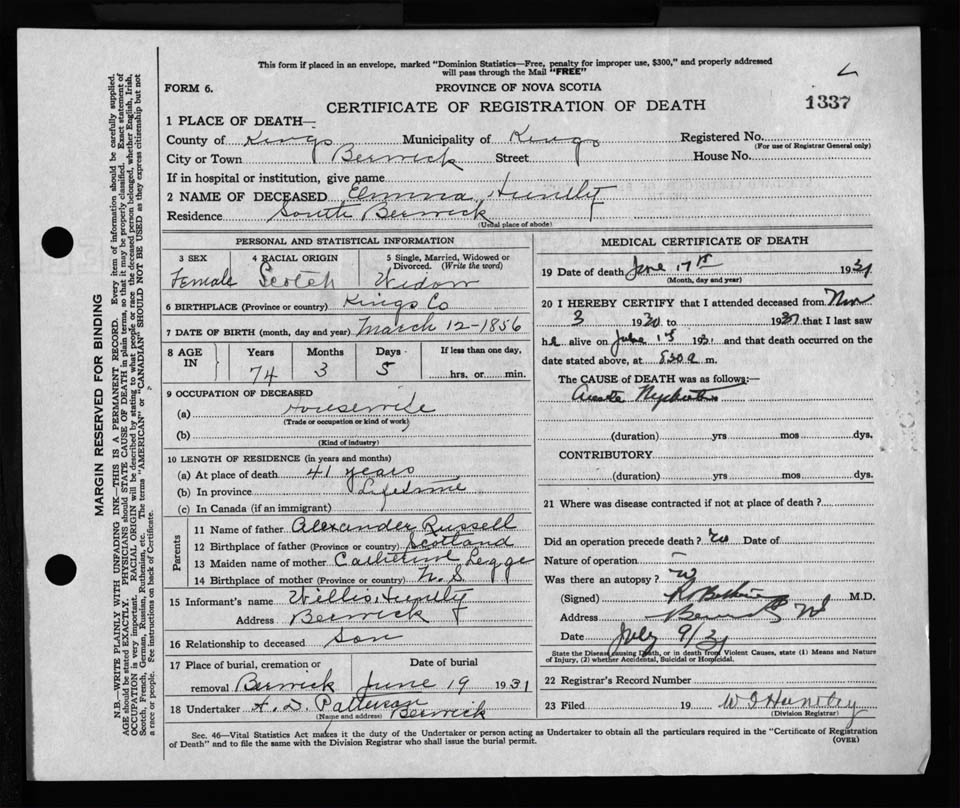 This form if placed in an envelope, marked "Dominion Statistics—Free, penalty for improper use, $300," and properly addressed
will pass through the Mail "FREE"
FORM 6.
PROVINCE OF NOVA SCOTIA
CERTIFICATE OF REGISTRATION OF DEATH
1337
1 PLACE OF DEATH—
County of Kings Municipality of Kings Registered No.
(For use of Registrar General only)
City or Town Berwick Street House No.
If in hospital or institution, give name
2 NAME OF DECEASED Emma Huntly
Residence South Berwick
(Usual place of abode)
PERSONAL AND STATISTICAL INFORMATION
3 SEX 4 RACIAL ORIGIN 5 Single, Married, Widowed or Divorced. (Write the word)
Female Scotch Widow
6 BIRTHPLACE (Province or country) Kings Co
7 DATE OF BIRTH (month, day and year) March 12-1856
8 AGE IN Years Months Days If less than one day,
74 3 5 hrs. or min.
9 OCCUPATION OF DECEASED
(a) Housewife
(Trade or occupation or kind of work)
(b)
(Kind of industry)
10 LENGTH OF RESIDENCE (in years and months)
(a) At place of death 41 years
(b) In province Lifetime
(c) In Canada (if an immigrant)
Parents
11 Name of father Alexander Russell
12 Birthplace of father (Province or country) Scotland
13 Maiden name of mother Catherine Legge
14 Birthplace of mother (Province or country) N. S.
15 Informant's name Willis Huntly
Address Berwick
16 Relationship to deceased Son
17 Place of burial, cremation or Date of burial
removal Berwick June 19 1931
18 Undertaker A. D. Patterson Berwick
(Name and address)
MEDICAL CERTIFICATE OF DEATH
19 Date of death June 17th 1931
(Month, day and year)
20 I HEREBY CERTIFY that I attended deceased from Nov
3 1930 to 1931 that I last saw
h alive on June 15 193 and that death occurred on the
date stated above, at 8:30 a m.
The CAUSE of DEATH was as follows:—
(duration) yrs mos dys.
CONTRIBUTORY
(duration) yrs mos dys.
21 Where was disease contracted if not at place of death?
Did an operation precede death? No Date of
Nature of operation
Was there an autopsy?
(Signed) M.D.
Address
Date July 9/31
State the Disease causing Death, or in death from Violent Causes, state (1) Means and Nature
of Injury, (2) whether Accidental, Suicidal or Homicidal.
22 Registrar's Record Number
23 Filed 19 W Huntley
(Division Registrar)
Sec. 46—Vital Statistics Act makes it the duty of the Undertaker or person acting as Undertaker to obtain all the particulars required in the "Certificate of Registration
of Death" and to file the same with the Division Registrar who shall issue the burial permit.
(OVER)
MARGIN RESERVED FOR BINDING
N.B.—WRITE PLAINLY WITH UNFADING INK—THIS IS A PERMANENT RECORD. Every item of information should be carefully supplied.
AGE should be stated EXACTLY. PHYSICIANS should STATE CAUSE OF DEATH in plain terms, so that it may be properly classified. Exact statement of
OCCUPATION is very important. RACIAL ORIGIN will be described by stating to what people or race the deceased person belonged, whether English, Irish,
Scotch, French, German, Russian, Ruthenian, etc. The terms "AMERICAN" or "CANADIAN" SHOULD NOT BE USED as they express citizenship but not
a race or people. See instructions on back of Certificate.